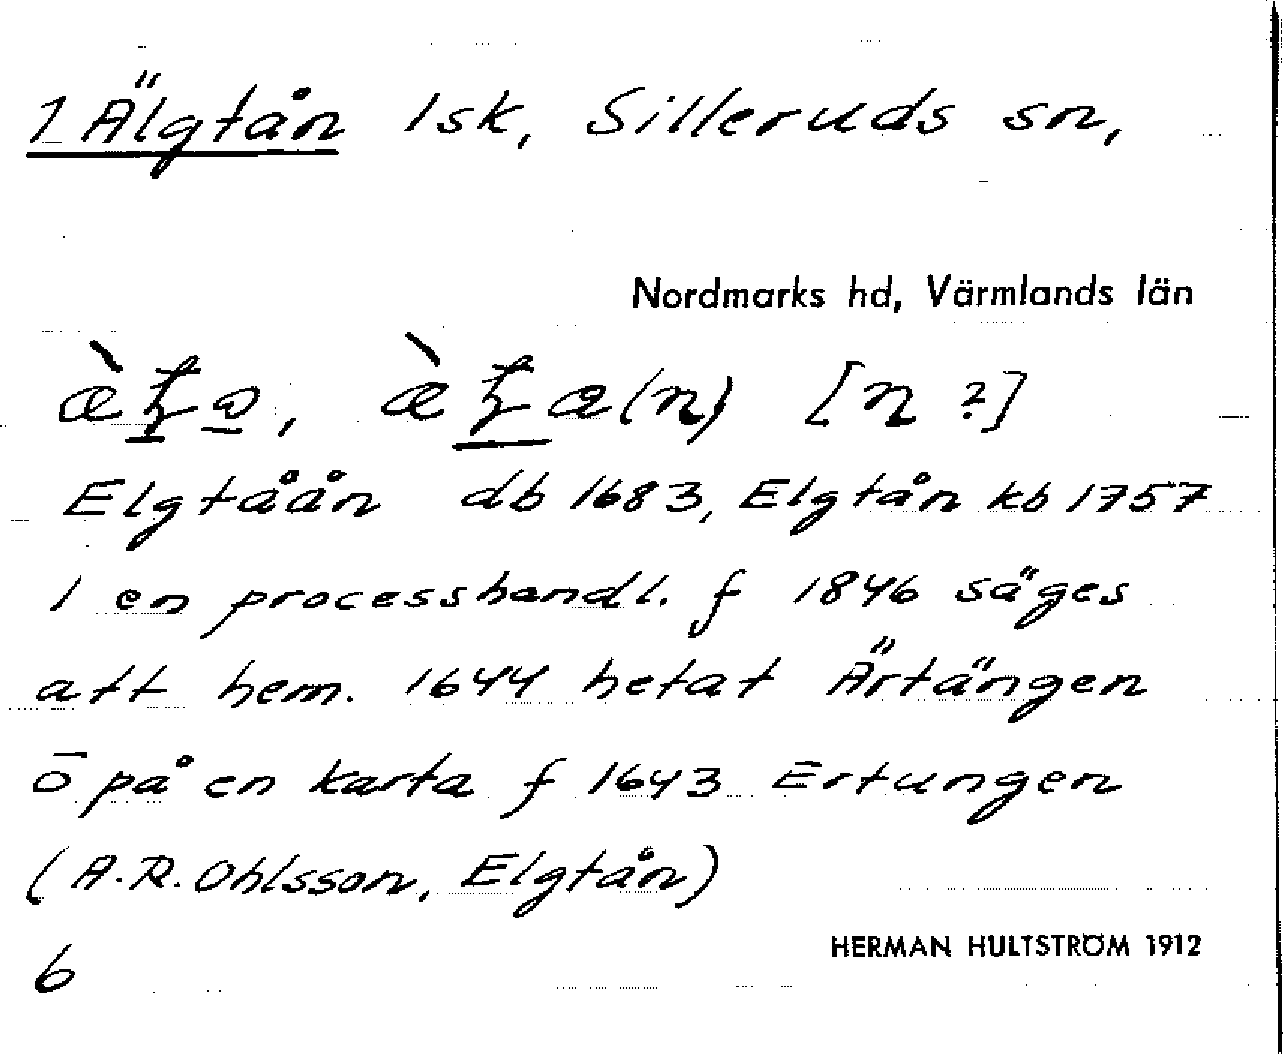 1 Älgtån 1sk, Silleruds sn,
Nordmarks hd, Värmlands län
[n ?]
Elgtåån db 1683, Elgtån kb 1757
I en processhandl. f 1846 säges
att hem. 1644 hetat Ärtängen
o på en karta f 1643 Ertungen
(A.R. Ohlsson, Elgtån)
6
HERMAN HULTSTRÖM 1912